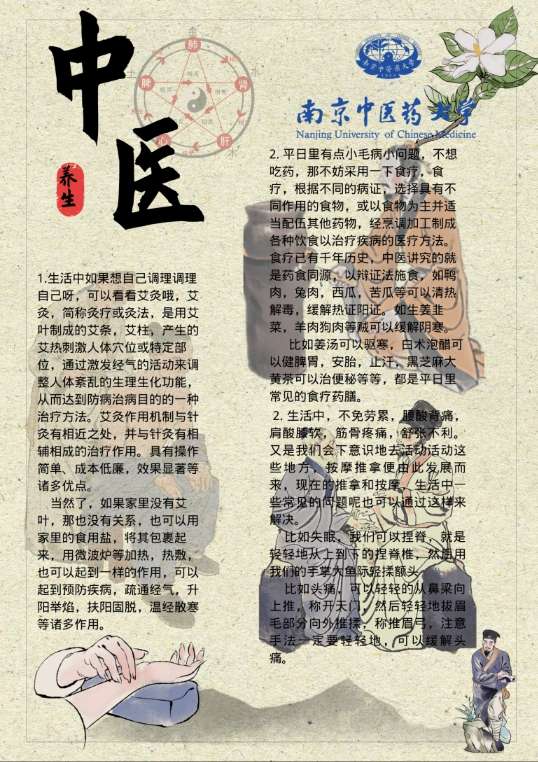 中医
养生
肺
肾
肝
心
脾
南京中医药大学
南京中医药大学
Nanjing University of Chinese Medicine
1.生活中如果想自己调理调理
自己呀，可以看看艾灸哦，艾
灸，简称灸疗或灸法，是用艾
叶制成的艾条，艾柱，产生的
艾热刺激人体穴位或特定部
位，通过激发经气的活动来调
整人体紊乱的生理生化功能，
从而达到防病治病目的的一种
治疗方法。艾灸作用机制与针
灸有相近之处，并与针灸有相
辅相成的治疗作用。具有操作
简单、成本低廉，效果显著等
诸多优点。
当然了，如果家里没有艾
叶，那也没有关系，也可以用
家里的食用盐，将其包裹起
来，用微波炉等加热，热敷，
也可以起到一样的作用，可以
起到预防疾病，疏通经气，升
阳举焰，扶阳固脱，温经散寒
等诸多作用。
2. 平日里有点小毛病小问题，不想
吃药，那不妨采用一下食疗，食
疗，根据不同的病证，选择具有不
同作用的食物，或以食物为主并适
当配伍其他药物，经烹调加工制成
各种饮食以治疗疾病的医疗方法。
食疗已有千年历史，中医讲究的就
是药食同源，以辩证法施食，如鸭
肉，兔肉，西瓜，苦瓜等可以清热
解毒，缓解热证阳证，如生姜韭
菜，羊肉狗肉等贼可以缓解阴寒。
比如姜汤可以驱寒，白术泡醋可
以健脾胃，安胎，止汗，黑芝麻大
黄茶可以治便秘等等，都是平日里
常见的食疗药膳。
2. 生活中，不免劳累，腰酸背痛，
肩酸膝软，筋骨疼痛，舒张不利。
又是我们会下意识地去活动活动这
些地方，按摩推拿便由此发展而
来，现在的推拿和按摩，生活中一
些常见的问题呢也可以通过这样来
解决。
比如失眠，我们可以捏脊，就是
轻轻地从上到下的捏脊椎，然后用
我们的手掌大鱼际轻揉额头，
比如头痛，可以轻轻的从鼻梁向
上推，称开天门，然后轻轻地拔眉
毛部分向外推揉，称推眉弓，注意
手法一定要轻轻地，可以缓解头
痛。